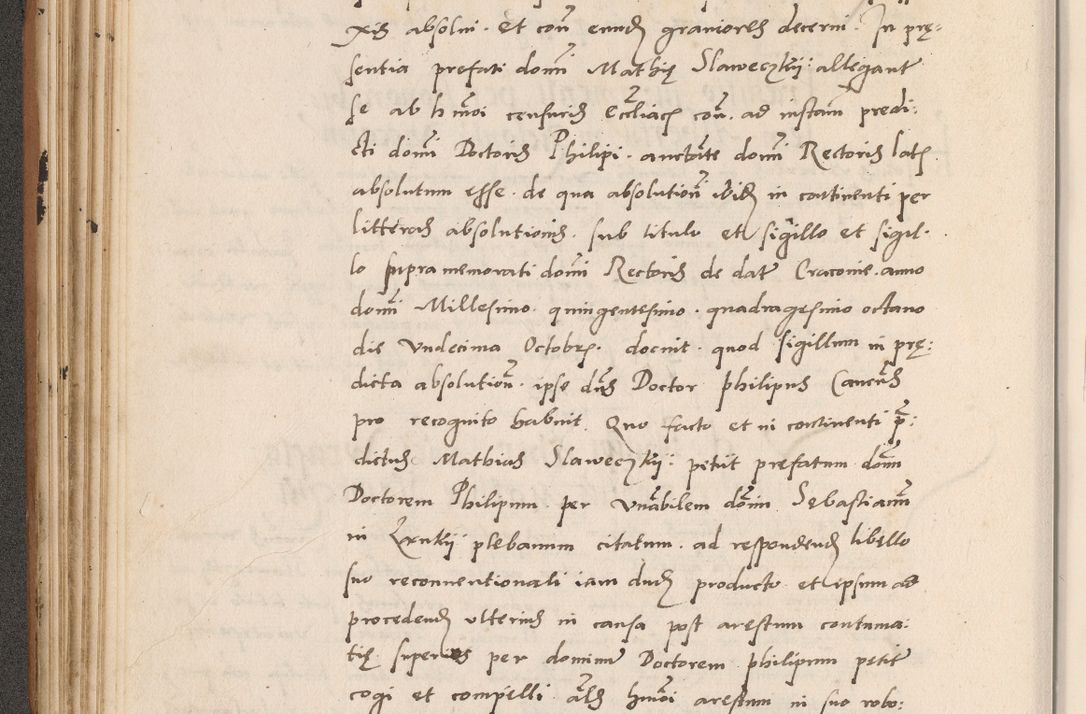 xis absolui. et con̄ eund(em) graviores decerni. In prę-
sentia prefati domī Mathię Slaweczkij: allegant̄
se ab hm̄oi censuris Ecc̄liacis con̄. ad instan̄ predi-
cti domī Doctoris Philipi. auctāte domī Rectoris lat(is)
absolutum esse. de qua absolutiōn ibid(em) in continenti per
litteras absolutionis. sub titulo et sigillo et sigil-
lo supramemorati domī Rectoris de dat̄ Cracovie. anno
domī Millesimo. quingentesimo. quadragesimo octavo
die Vndecima Octobr(is). docuit. quod sigillum in prę-
dicta absolutiōn. ipse dn̄s Doctor philipus Canc̄rs
pro recognito habuit. Quo facto et in continenti p̄-
dictus Mathias Slaweczkij: petiit prefatum domī
Doctorem Philipum per Vn̄abilem dōmin Sębastianūm
in plebanum citatum. ad respondend(um) libello
suo reconventionali iam dud(um) producto et ipsum ad
procedend(um) ulterius in causa post arestum contuma-
tię super per dominum Doctorem philipum petit̄
cogi et compelli. al̄s hm̄oi arestum in suo robo-